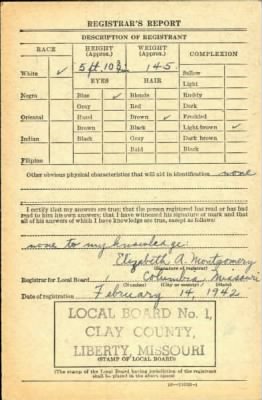 REGISTRAR'S REPORT
DESCRIPTION OF REGISTRANT
RACE HEIGHT (Approx.) WEIGHT (Approx.) COMPLEXION
White ✓ 5 ft 10 145 Sallow
EYES HAIR Light
Negro Blue ✓ Blonde Ruddy
Gray Red Dark
Oriental Hazel Brown ✓ Freckled
Brown Black Light brown ✓
Indian Black Gray Dark brown
Bald Black
Filipino
Other obvious physical characteristics that will aid in identification none
I certify that my answers are true; that the person registered has read or has had
read to him his own answers; that I have witnessed his signature or mark and that
all of his answers of which I have knowledge are true, except as follows:
none to my knowledge
Elizabeth A. Montgomery
(Signature of registrar)
Registrar for Local Board Columbia Missouri
(Number) (City or county) (State)
Date of registration February 14, 1942
LOCAL BOARD No. 1,
CLAY COUNTY,
LIBERTY, MISSOURI
(STAMP OF LOCAL BOARD)
(The stamp of the Local Board having jurisdiction of the registrant
shall be placed in the above space)